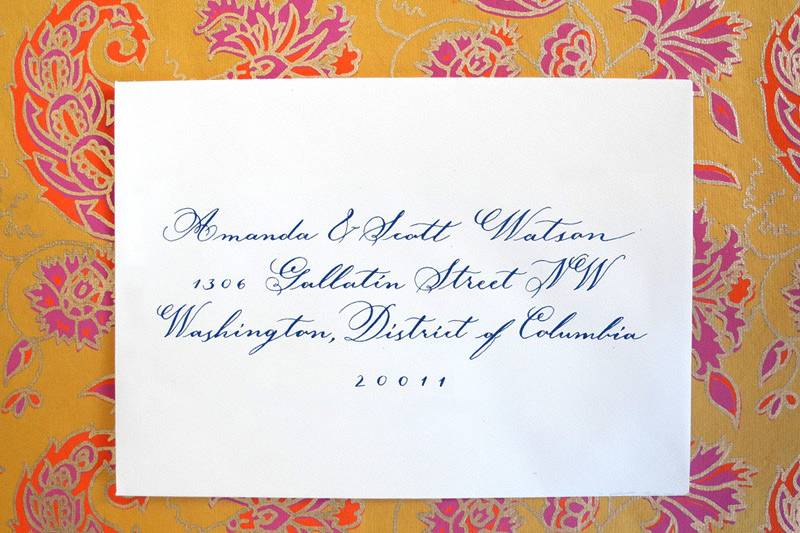 Amanda & Scott Watson
1306 Gallatin Street NW
Washington, District of Columbia
20011